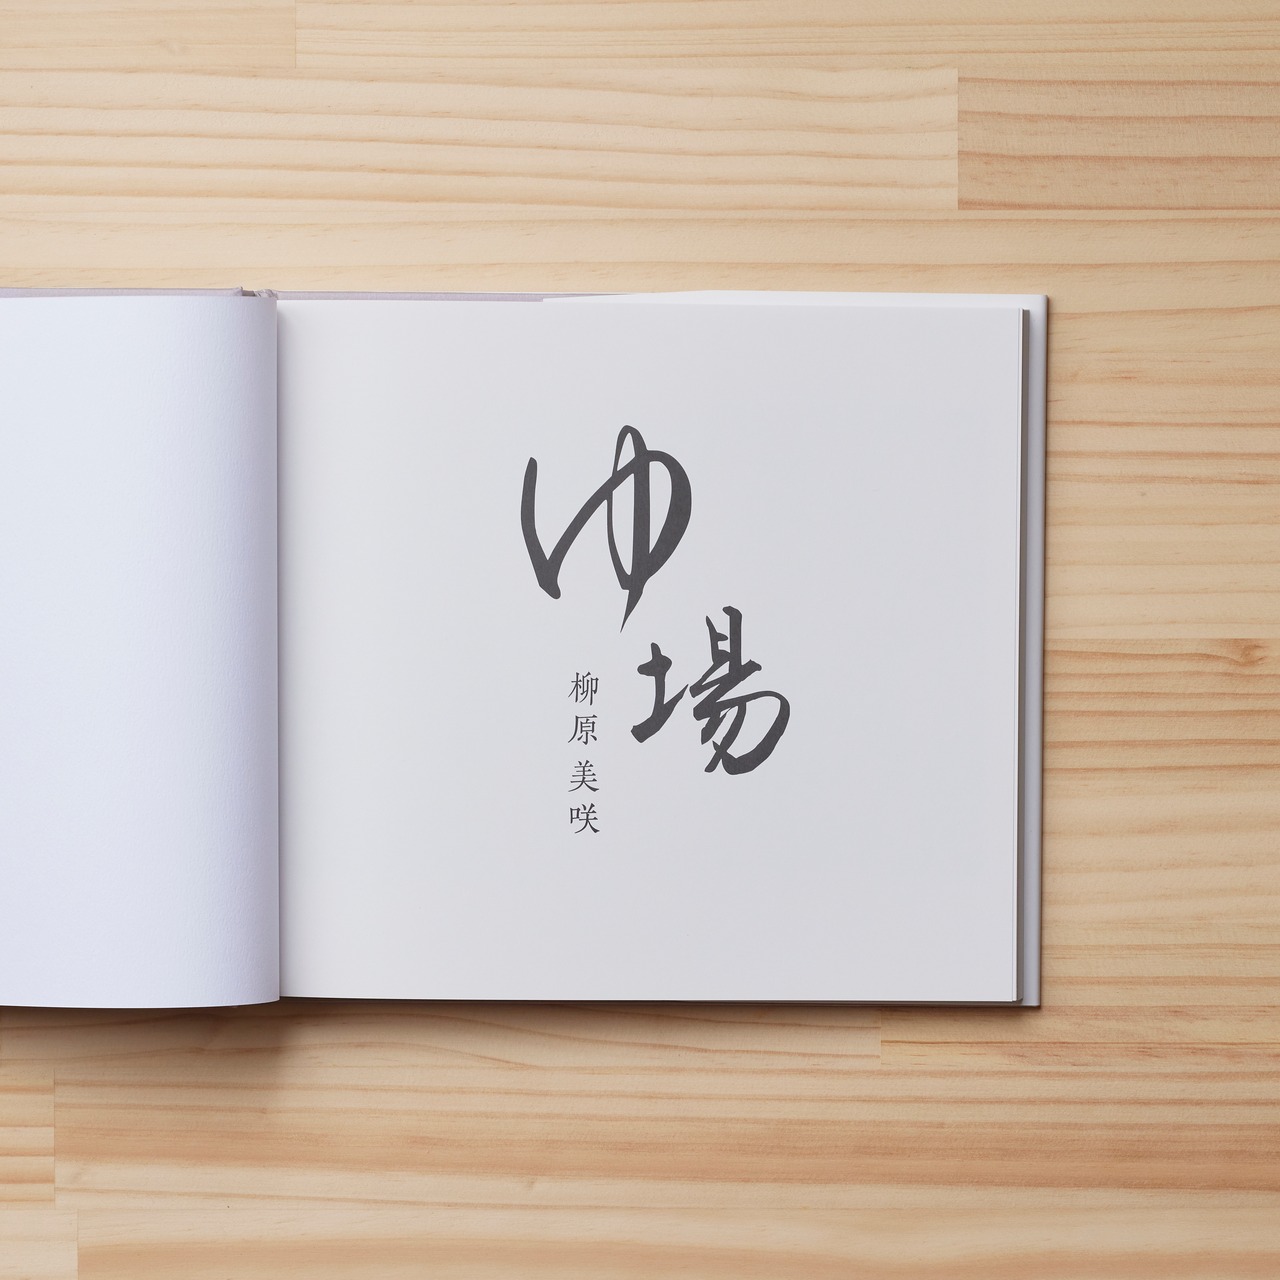 ゆ場
柳原美咲